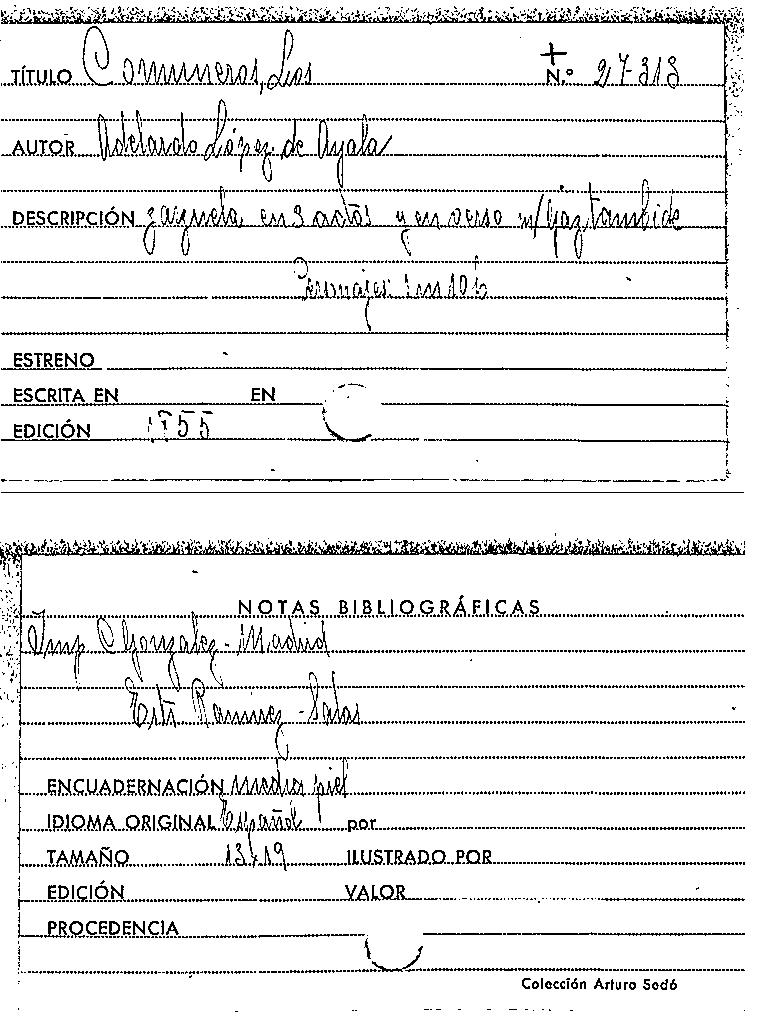 TÍTULO Comuneros, Los + N.º 27-313
AUTOR Adelardo López de Ayala
DESCRIPCIÓN zarzuela en 3 actos y en verso m/ Gaztambide
Personajes: 1 m 10 h
ESTRENO
ESCRITA EN EN
EDICIÓN 1855
NOTAS BIBLIOGRÁFICAS
Imp C Gonzalez - Madrid
Ramirez - Salas
ENCUADERNACIÓN media piel
IDIOMA ORIGINAL Español por
TAMAÑO 13x19 ILUSTRADO POR
EDICIÓN VALOR
PROCEDENCIA
Colección Arturo Sedó